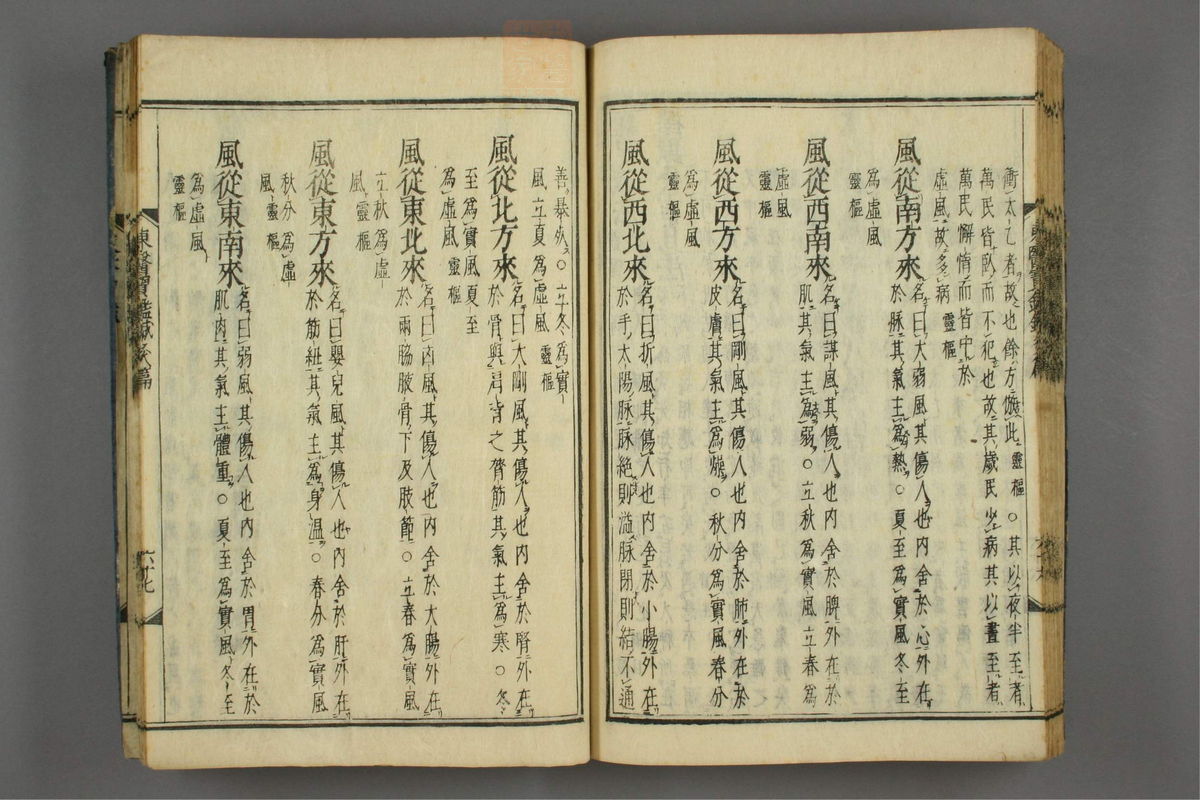 衝太乙者故也餘方倣此靈樞○其以夜半至者
萬民皆卧而不犯也故其歲民少病其以晝至者
萬民懈惰而皆中於
虛風故多病靈樞
風從南方來名曰大弱風其傷人也內舍於心外在
於脉其氣主爲熱○夏至爲實風冬至
爲虛風
靈樞
風從西南來名曰謀風其傷人也內舍於脾外在於
肌其氣主爲弱○立秋爲實風立春爲
虛風
靈樞
風從西方來名曰剛風其傷人也內舍於肺外在於
皮膚其氣主爲燥○秋分爲實風春分
爲虛風
靈樞
風從西北來名曰折風其傷人也內舍於小腸外在
於手太陽脉脉絕則溢脉閉則結不通
善暴死○立冬爲實
風立夏爲虛風靈樞
風從北方來名曰大剛風其傷人也內舍於腎外在
於骨與肩背之膂筋其氣主爲寒○冬
至爲實風夏至
爲虛風靈樞
風從東北來名曰凶風其傷人也內舍於大腸外在
於兩脇腋骨下及肢節○立春爲實風
立秋爲虛
風靈樞
風從東方來名曰嬰兒風其傷人也內舍於肝外在
於筋紐其氣主爲身溫○春分爲實風
秋分爲虛
風靈樞
風從東南來名曰弱風其傷人也內舍於胃外在於
肌肉其氣主體重○夏至爲實風冬至
爲虛風
靈樞
東醫寶鑑鍼灸篇
六十七